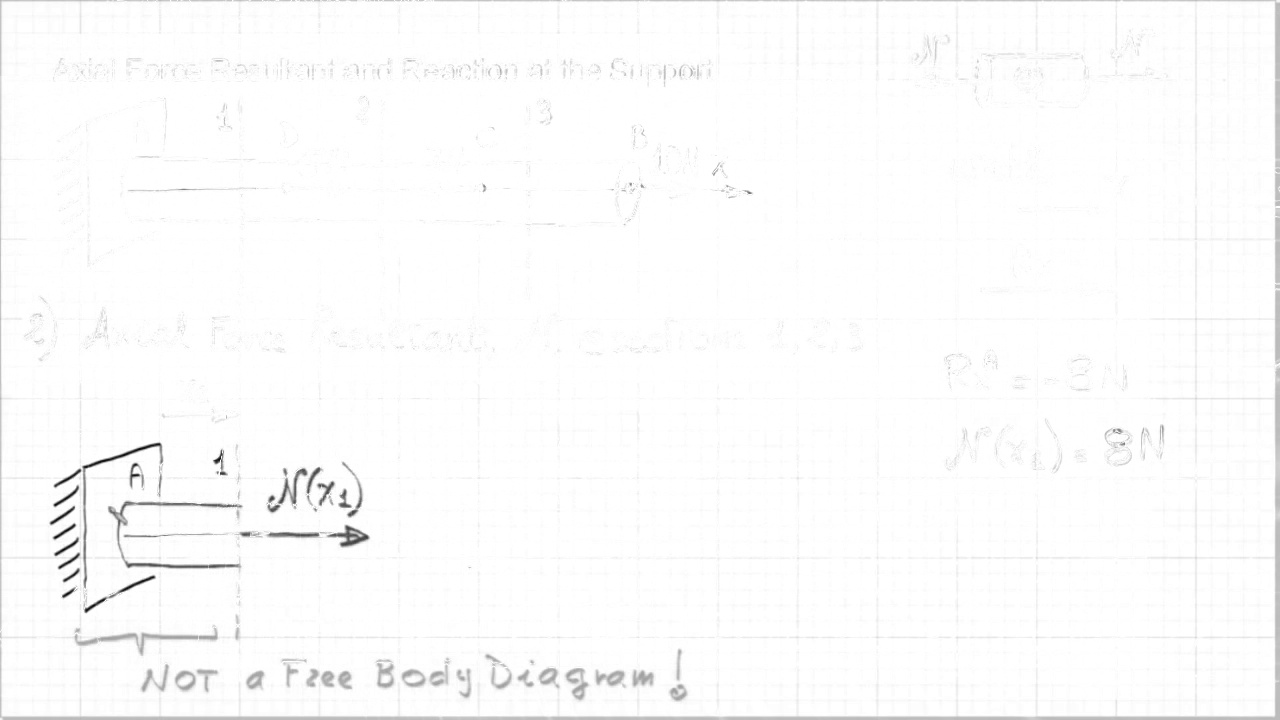 Axial Force Resultant and Reaction at the Support
N N
1 2 3
D C B 10N x
2) Axial Force Resultant, N, @ section 1, 2, 3
Rx^A = -8N
N(x1) = 8N
A 1 N(x1)
NOT a Free Body Diagram!